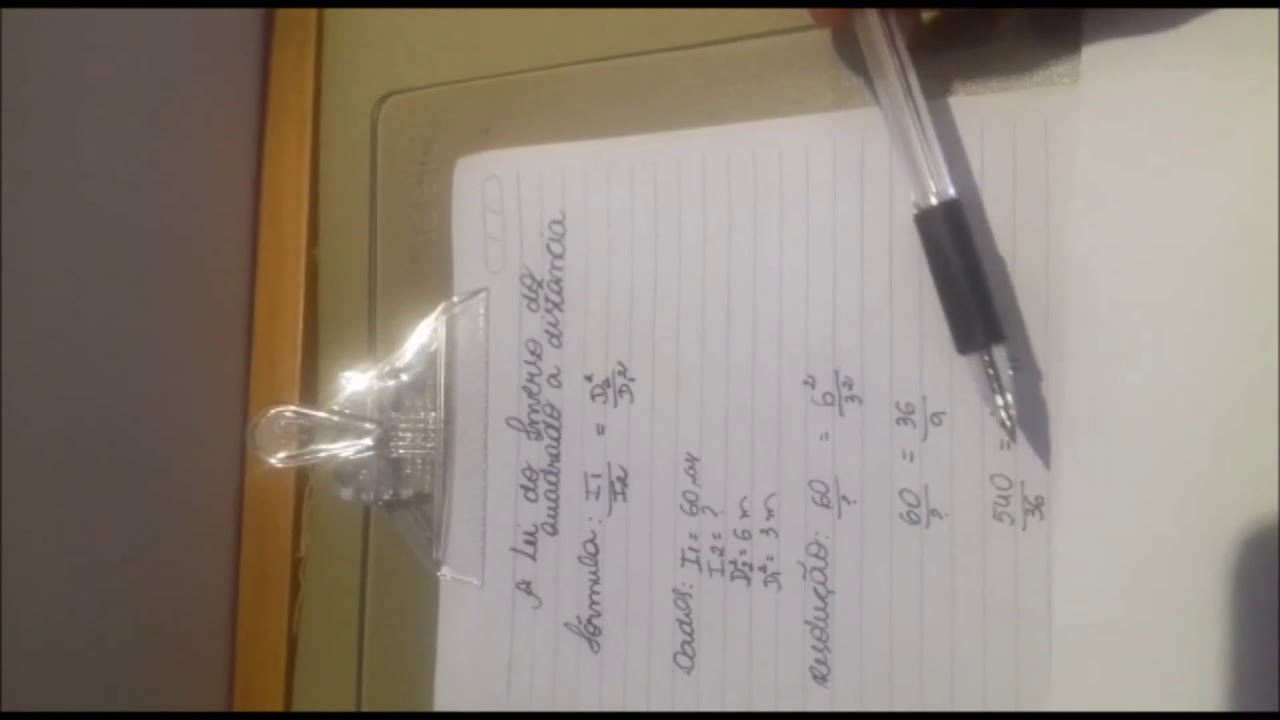 A Lei do Inverso do
quadrado a distância
fórmula: I1/I2 = D2²/D1²
Dados: I1 = 60
I2 = ?
D2² = 6 m
D1² = 3 m
Resolução: 60/? = 6²/3²
60/? = 36/9
540/36 =